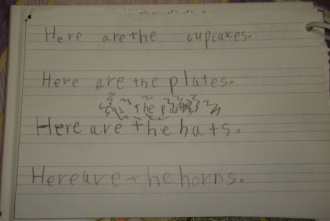 Here are the cupcakes.
Here are the plates.
the
Here are the hats.
Here are the horns.